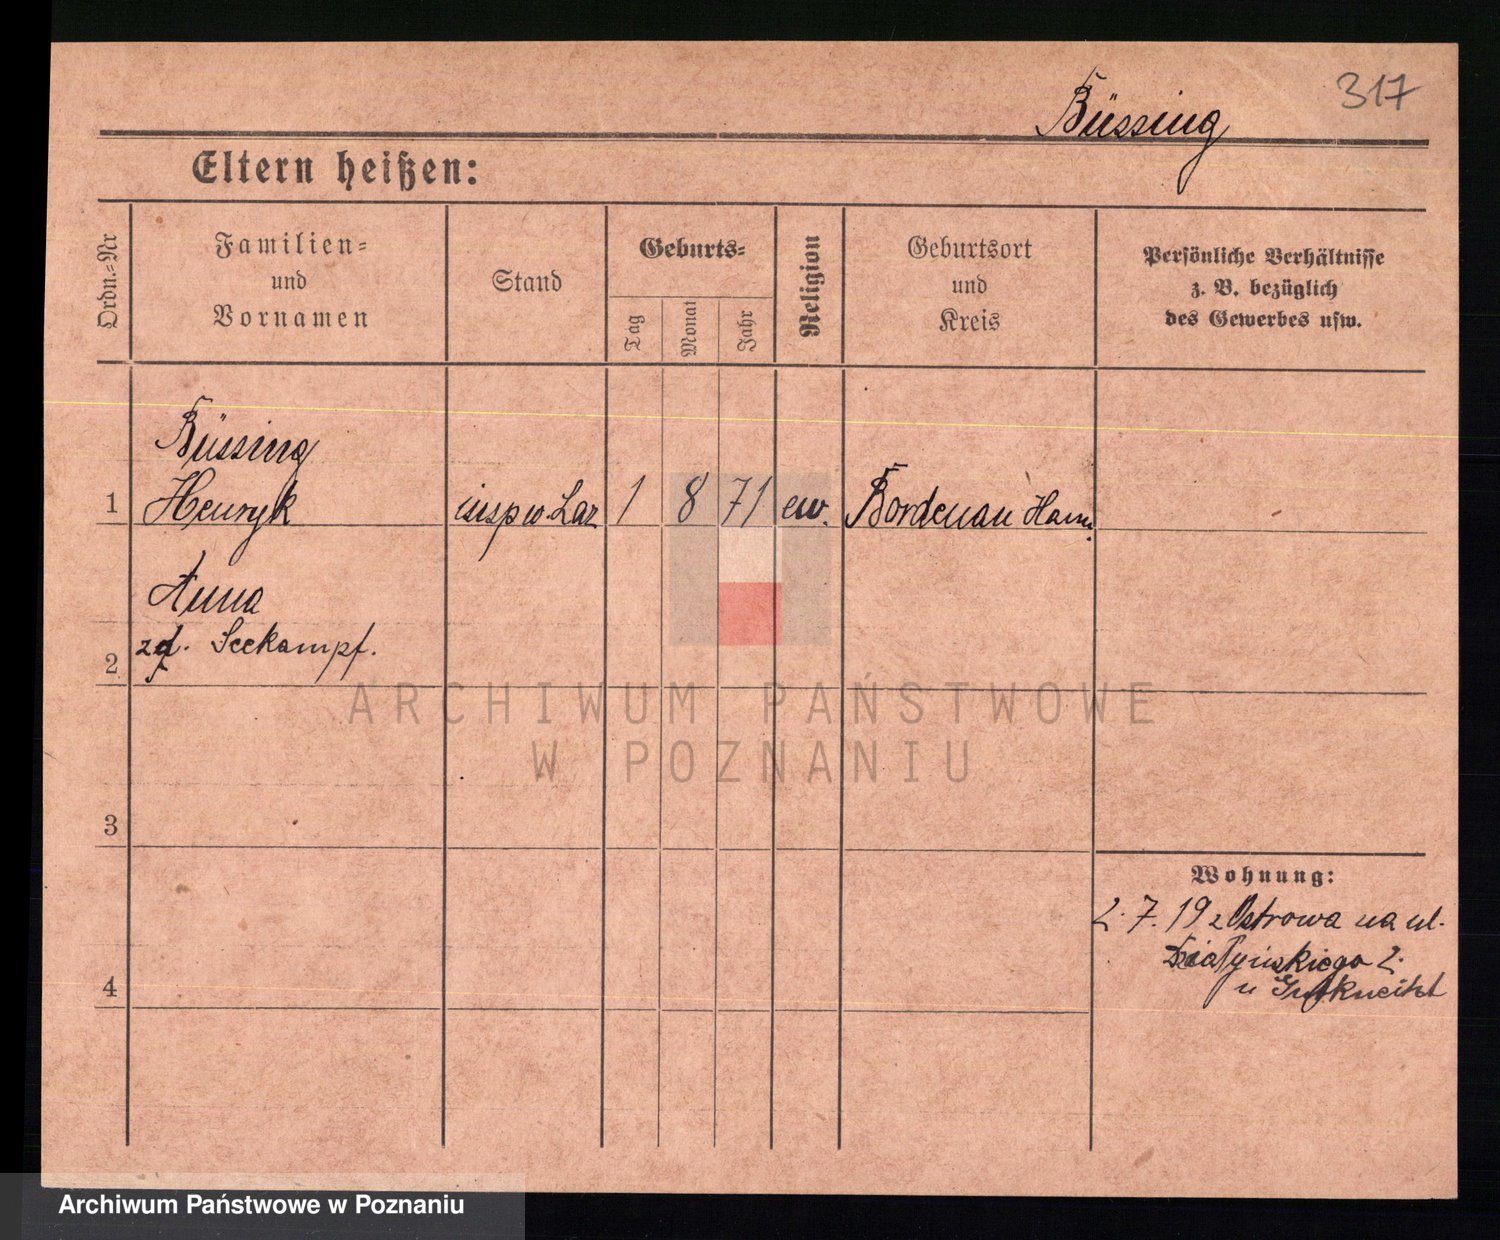 317
Büssing
Eltern heißen:
Ordn.=Nr
Familien=
und
Vornamen
Stand
Geburts=
Tag
Monat
Jahr
Religion
Geburtsort
und
Kreis
Persönliche Verhältnisse
z. B. bezüglich
des Gewerbes usw.
Büssing
1 Henryk insp w. Laz 1 8 71 ew. Bordenau Han.
Anna
2 Seekampf.
3
4
Wohnung:
2. 7. 19 z Ostrowa na ul.
Działyńskiego 2.
u Gutknecht
ARCHIWUM PAŃSTWOWE
W POZNANIU
Archiwum Państwowe w Poznaniu